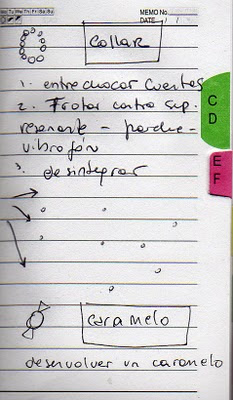 Mo Tu We Th Fr Sa Su
MEMO No.
DATE / /
Collar
1. entrechocar cuentas
2. Frotar contra sup.
resonante - parche -
vibrafón
3. desintegrar
C
D
E
F
caramelo
desenvolver un caramelo